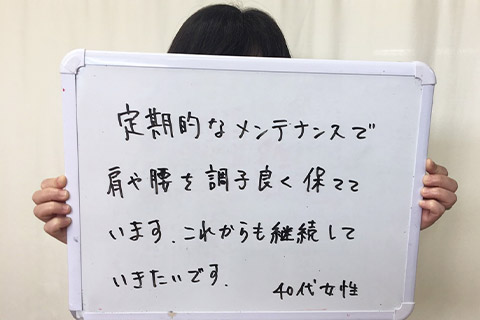 定期的なメンテナンスで
肩や腰を調子良く保てて
います.これからも継続して
いきたいです.
40代女性